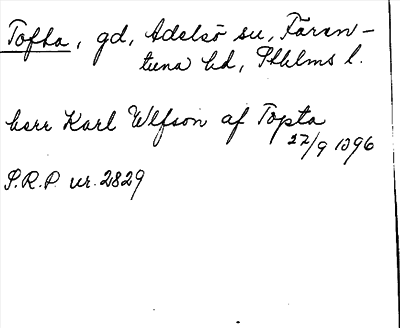 Tofta, gd, Adelsö sn, Fären-
tuna hd, Sthlms l.
herr Karl Ulfson af Topta
22/9 1396
S.R.P. nr. 2829